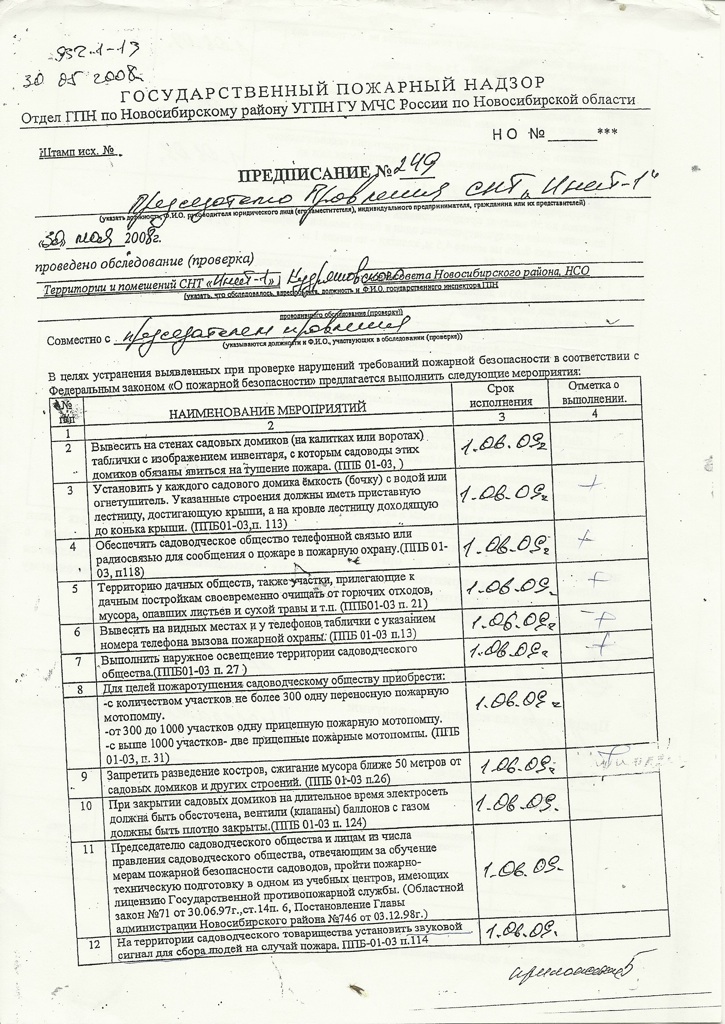 932-1-13
30 05 2008
ГОСУДАРСТВЕННЫЙ ПОЖАРНЫЙ НАДЗОР
Отдел ГПН по Новосибирскому району УГПН ГУ МЧС России по Новосибирской области
Н О №______***
Штамп исх. №
ПРЕДПИСАНИЕ № 249
Председателю Правления СНТ „Инет-1"
(указать должность, Ф.И.О. руководителя юридического лица (его заместителя), индивидуального предпринимателя, гражданина или их представителей)
«30» мая 2008г.
проведено обследование (проверка)
Территории и помещений СНТ «Инет-1», Кудряшовского сельсовета Новосибирского района, НСО
(указать, что обследовалось, адрес, должность и Ф.И.О. государственного инспектора ГПН
проводившего обследование (проверку))
Совместно с председателем правления
(указываются должности и Ф.И.О., участвующих в обследовании (проверке))
В целях устранения выявленных при проверке нарушений требований пожарной безопасности в соответствии с
Федеральным законом «О пожарной безопасности» предлагается выполнить следующие мероприятия:
№ п/п НАИМЕНОВАНИЕ МЕРОПРИЯТИЙ Срок исполнения Отметка о выполнении.
1 2 3 4
2 Вывесить на стенах садовых домиков (на калитках или воротах)
таблички с изображением инвентаря, с которым садоводы этих
домиков обязаны явиться на тушение пожара. (ППБ 01-03, ) 1.06.09г
3 Установить у каждого садового домика ёмкость (бочку) с водой или
огнетушитель. Указанные строения должны иметь приставную
лестницу, достигающую крыши, а на кровле лестницу доходящую
до конька крыши. (ППБ01-03,п. 113) 1.06.09г +
4 Обеспечить садоводческое общество телефонной связью или
радиосвязью для сообщения о пожаре в пожарную охрану.(ППБ 01-
03, п118) 1.06.09г +
5 Территорию дачных обществ, также участки, прилегающие к
дачным постройкам своевременно очищать от горючих отходов,
мусора, опавших листьев и сухой травы и т.п. (ППБ01-03 п. 21) 1.06.09г +
6 Вывесить на видных местах и у телефонов таблички с указанием
номера телефона вызова пожарной охраны. (ППБ 01-03 п.13) 1.06.09г +
7 Выполнить наружное освещение территории садоводческого
общества.(ППБ01-03 п. 27 ) 1.06.09г +
8 Для целей пожаротушения садоводческому обществу приобрести:
-с количеством участков не более 300 одну переносную пожарную
мотопомпу.
-от 300 до 1000 участков одну прицепную пожарную мотопомпу.
-с выше 1000 участков- две прицепные пожарные мотопомпы. (ППБ
01-03, п. 31) 1.06.09г
9 Запретить разведение костров, сжигание мусора ближе 50 метров от
садовых домиков и других строений. (ППБ 01-03 п.26) 1.06.09г +
10 При закрытии садовых домиков на длительное время электросеть
должна быть обесточена, вентили (клапаны) баллонов с газом
должны быть плотно закрыты.(ППБ 01-03 п. 124) 1.06.09.
11 Председателю садоводческого общества и лицам из числа
правления садоводческого общества, отвечающим за обучение
мерам пожарной безопасности садоводов, пройти пожарно-
техническую подготовку в одном из учебных центров, имеющих
лицензию Государственной противопожарной службы. (Областной
закон №71 от 30.06.97г.,ст.14п. 6, Постановление Главы
администрации Новосибирского района №746 от 03.12.98г.) 1.06.09.
12 На территории садоводческого товарищества установить звуковой
сигнал для сбора людей на случай пожара. ППБ-01-03 п.114 1.06.09.
приложение 5